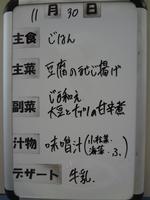 11月30日
主食 ごはん
主菜 豆腐のそぼろ揚げ
副菜 ごま和え
大豆とナッツの甘辛煮
汁物 味噌汁(小松菜・
油揚・ふ)
デザート 牛乳